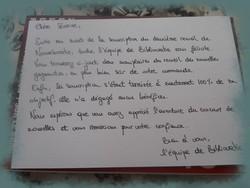 Chère Florence,
Suite au succès de la souscription du deuxième recueil de
toute l'équipe de vous félicite.
Vous trouverez ci-joint deux exemplaires du recueil des nouvelles
gagnantes, en plus bien sûr de votre commande.
Enfin, la souscription s'étant terminée à exactement 100% de son
objectif, elle n'a dégagé aucun bénéfice.
Nous espérons que vous avez apprécié l'aventure du concours de
nouvelles et vous remercions pour votre confiance.
Bien à vous,
l'équipe de